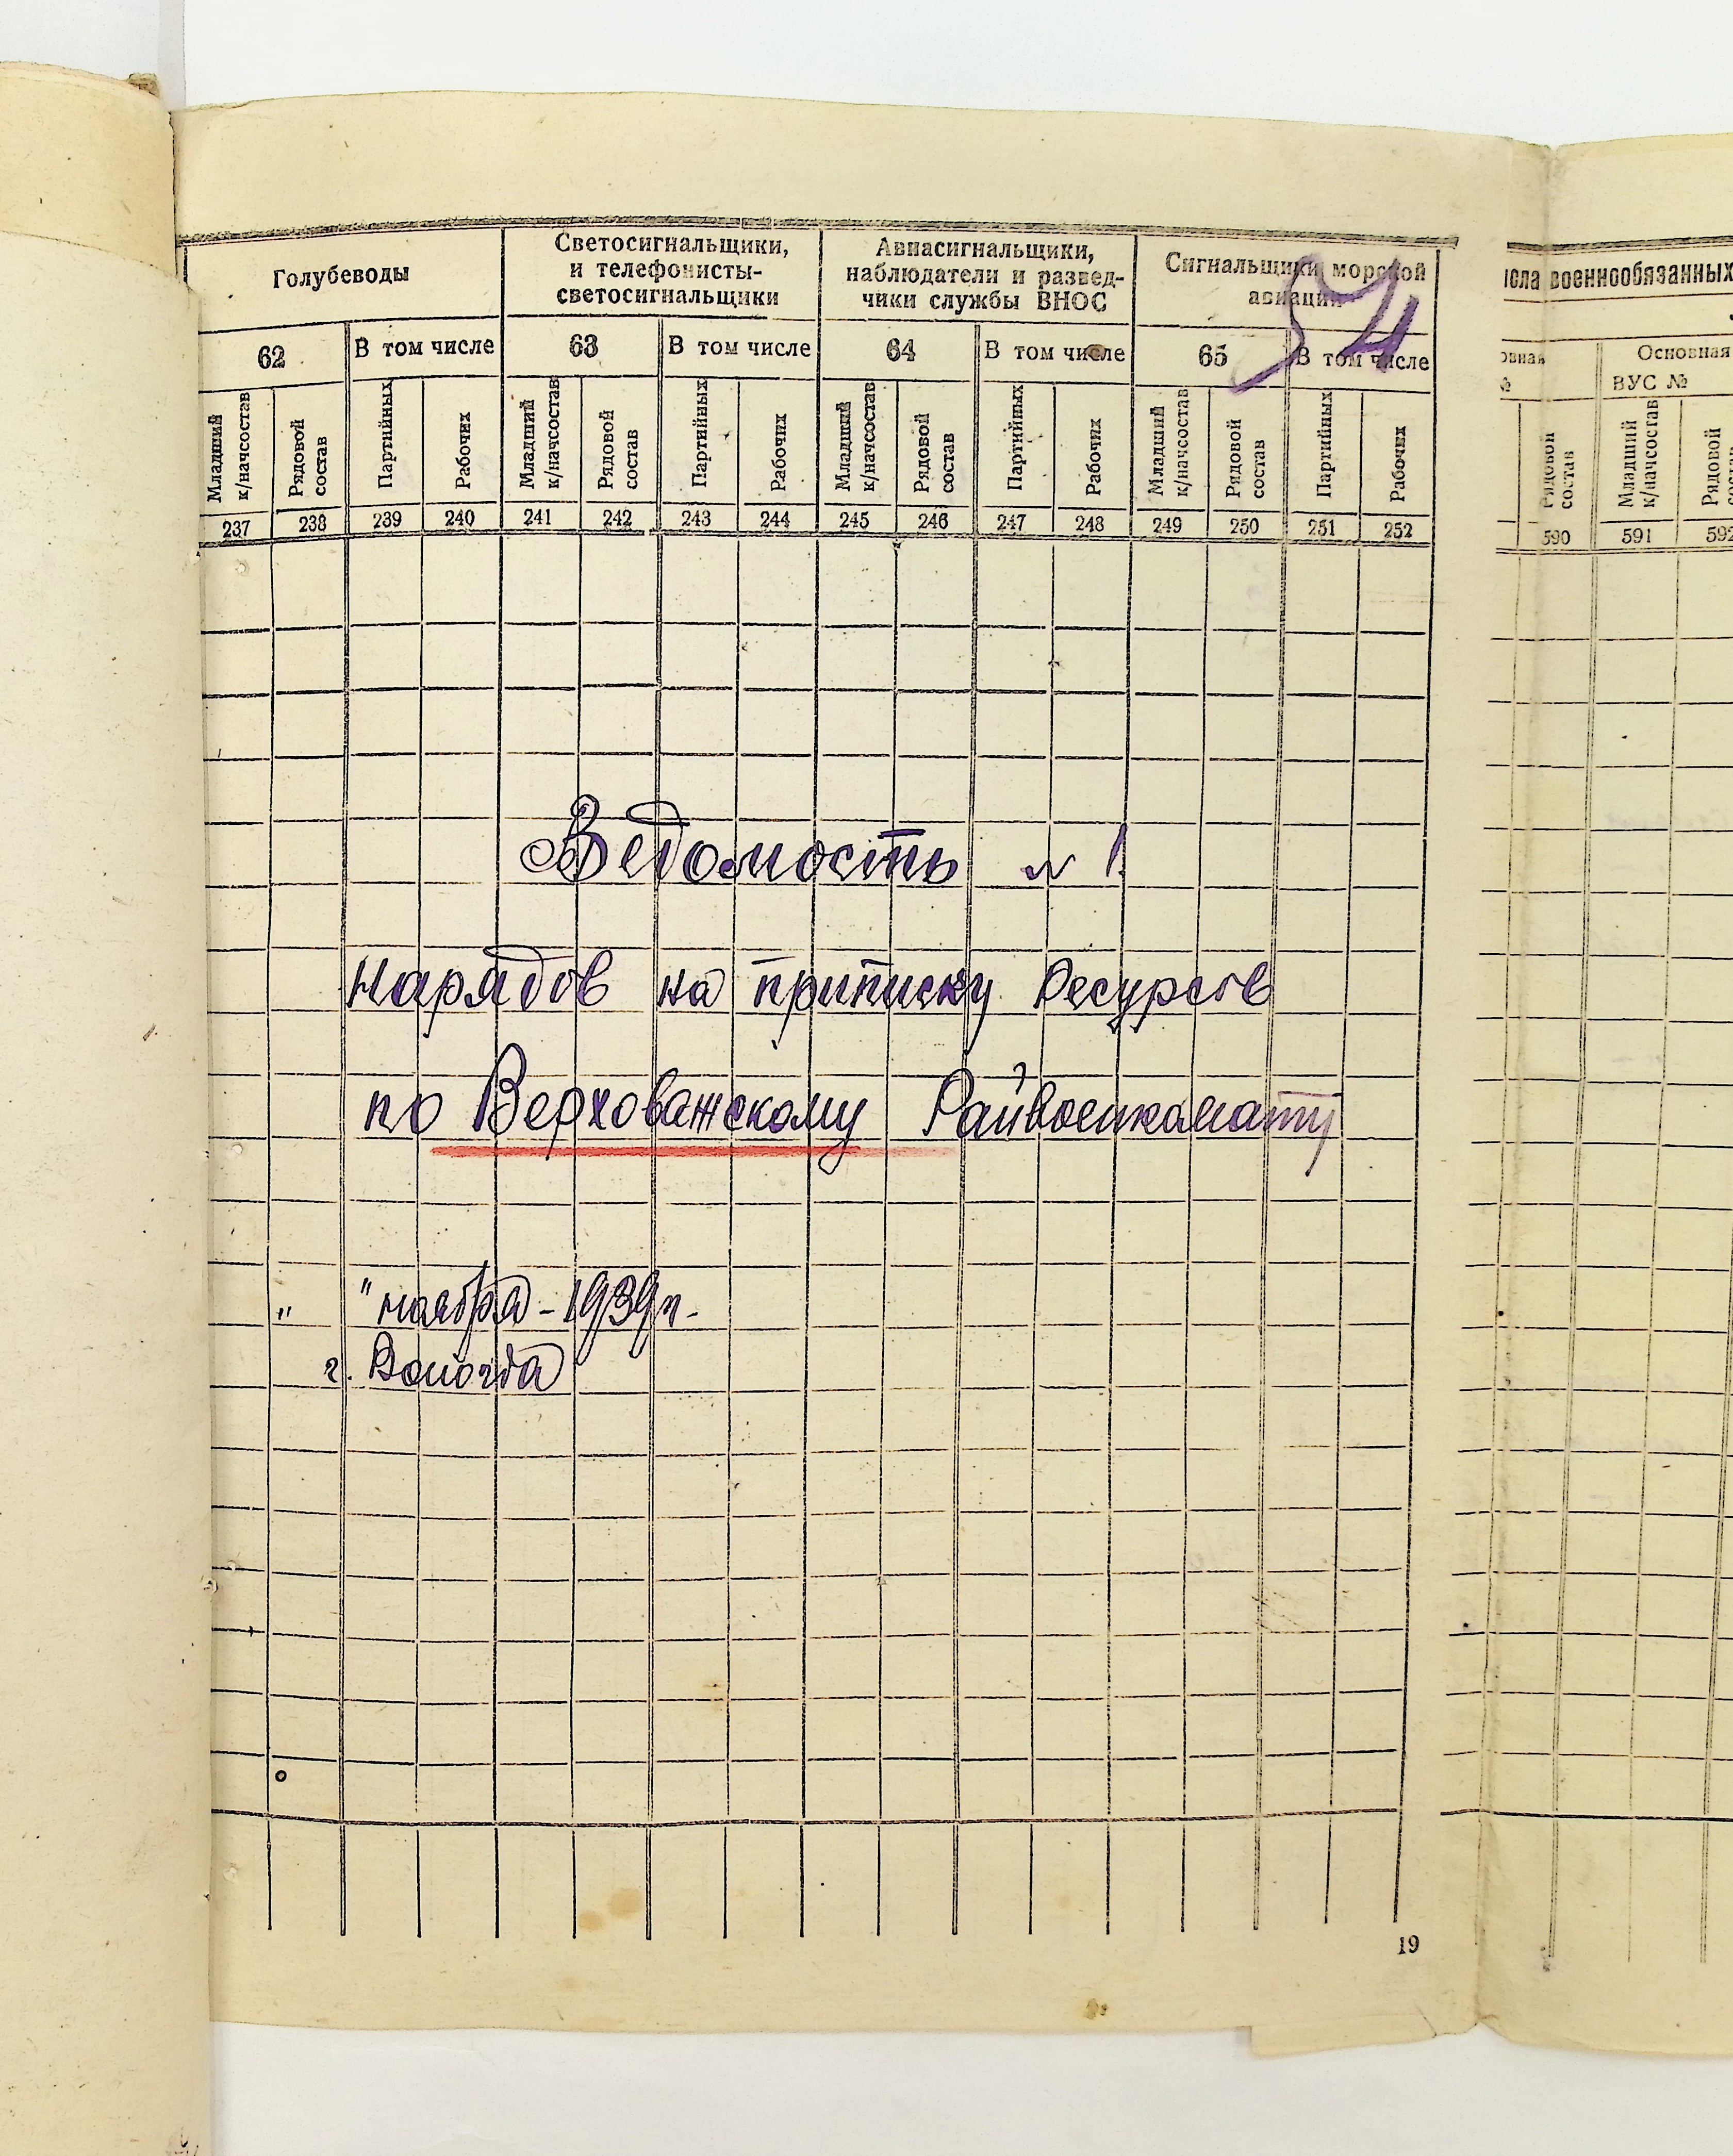 Голубеводы
Светосигнальщики,
и телефонисты-
светосигнальщики
Авиасигнальщики,
наблюдатели и развед-
чики службы ВНОС
Сигнальщики морской
авиации
62 В том числе 63 В том числе 64 В том числе 65 В том числе
Младший к/начсостав Рядовой состав Партийных Рабочих Младший к/начсостав Рядовой состав Партийных Рабочих Младший к/начсостав Рядовой состав Партийных Рабочих Младший к/начсостав Рядовой состав Партийных Рабочих
237 238 239 240 241 242 243 244 245 246 247 248 249 250 251 252
Ведомость № 1.
Нарядов на приписку Ресурсов
по Верховажскому Райвоенкомату
„ " ноября - 1939 г.
г. Вологда
19
военнообязанных
Основная
ВУС №
Рядовой состав Младший к/начсостав Рядовой
590 591 592